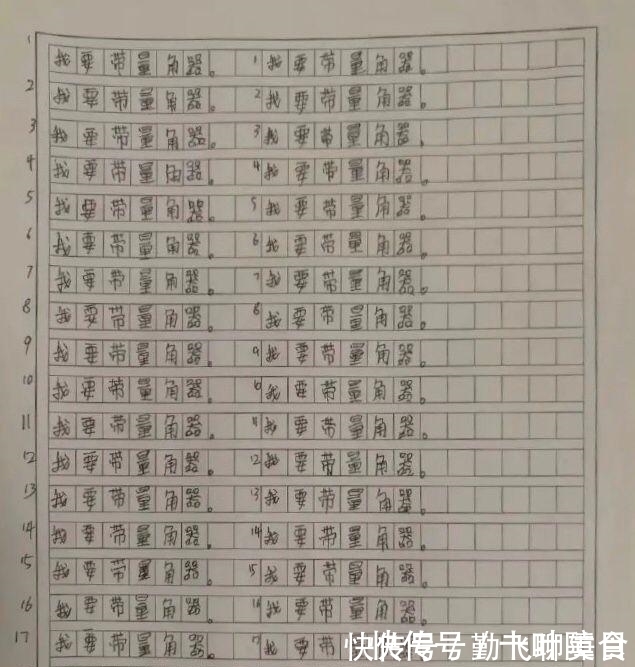 1 我要带量角器。 1 我要带量角器。
2 我要带量角器。 2 我要带量角器。
3 我要带量角器。 3 我要带量角器。
4 我要带量角器。 4 我要带量角器。
5 我要带量角器。 5 我要带量角器。
6 我要带量角器。 6 我要带量角器。
7 我要带量角器。 7 我要带量角器。
8 我要带量角器。 8 我要带量角器。
9 我要带量角器。 9 我要带量角器。
10 我要带量角器。 10 我要带量角器。
11 我要带量角器。 11 我要带量角器。
12 我要带量角器。 12 我要带量角器。
13 我要带量角器。 13 我要带量角器。
14 我要带量角器。 14 我要带量角器。
15 我要带量角器。 15 我要带量角器。
16 我要带量角器。 16 我要带量角器。
17 我要带量角器。 17 我要带